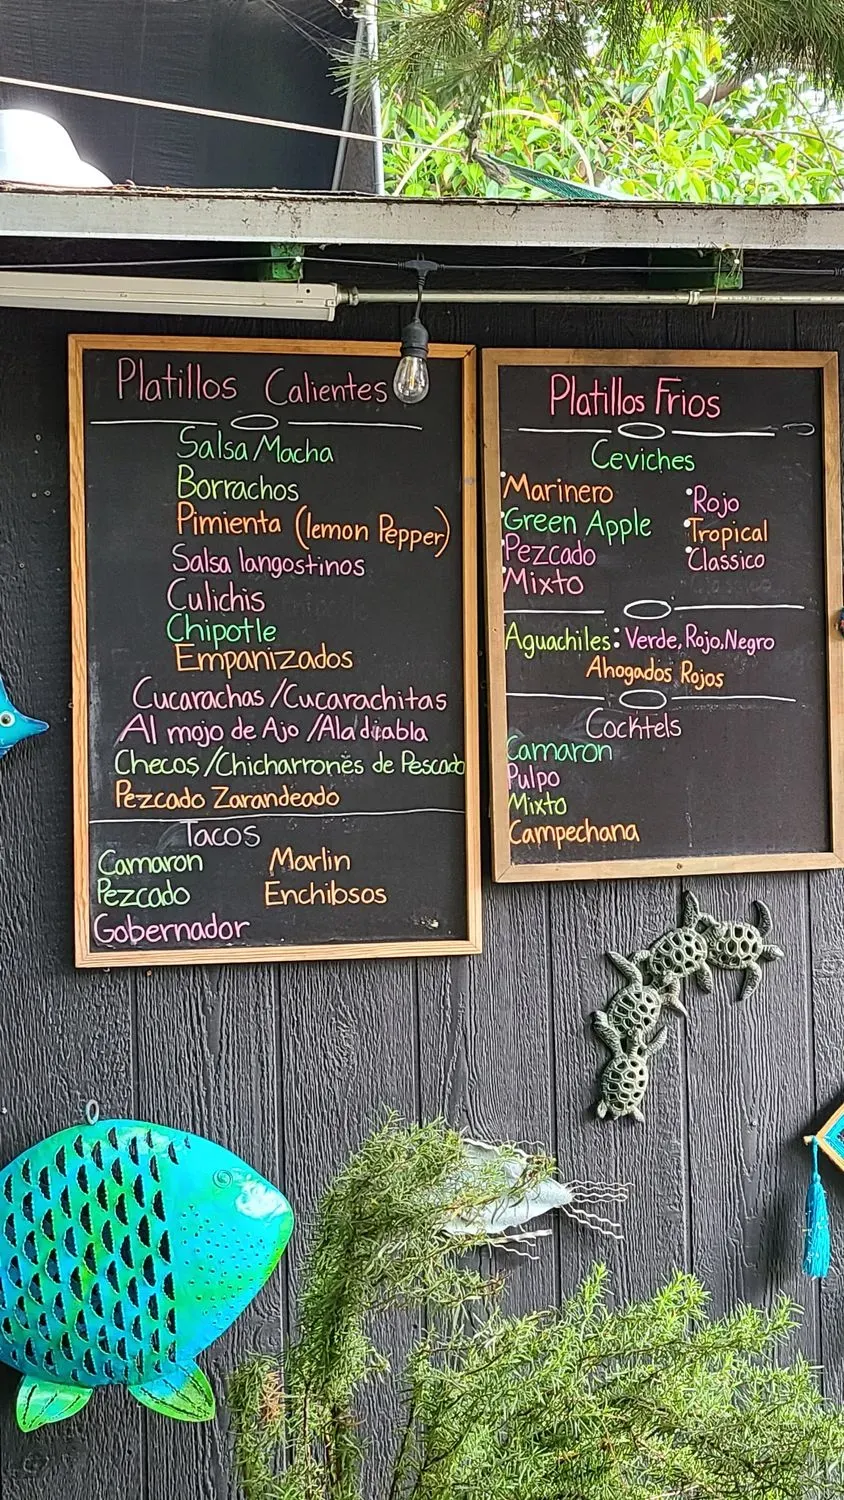 Platillos Calientes
Salsa Macha
Borrachos
Pimienta (lemon Pepper)
Salsa langostinos
Culichis
Chipotle
Empanizados
Cucarachas/Cucarachitas
Al mojo de Ajo/Ala diabla
Checos/Chicharrones de Pescado
Pezcado Zarandeado
Tacos
Camaron Marlin
Pezcado Enchibsos
Gobernador
Platillos Frios
Ceviches
Marinero Rojo
Green Apple Tropical
Pezcado Classico
Mixto
Aguachiles: Verde, Rojo, Negro
Ahogados Rojos
Cocktels
Camaron
Pulpo
Mixto
Campechana